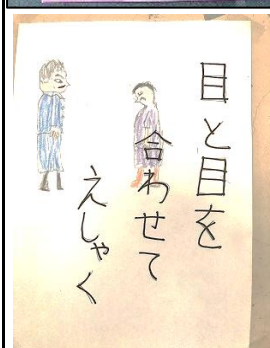 目と目を
合わせて
えしゃく